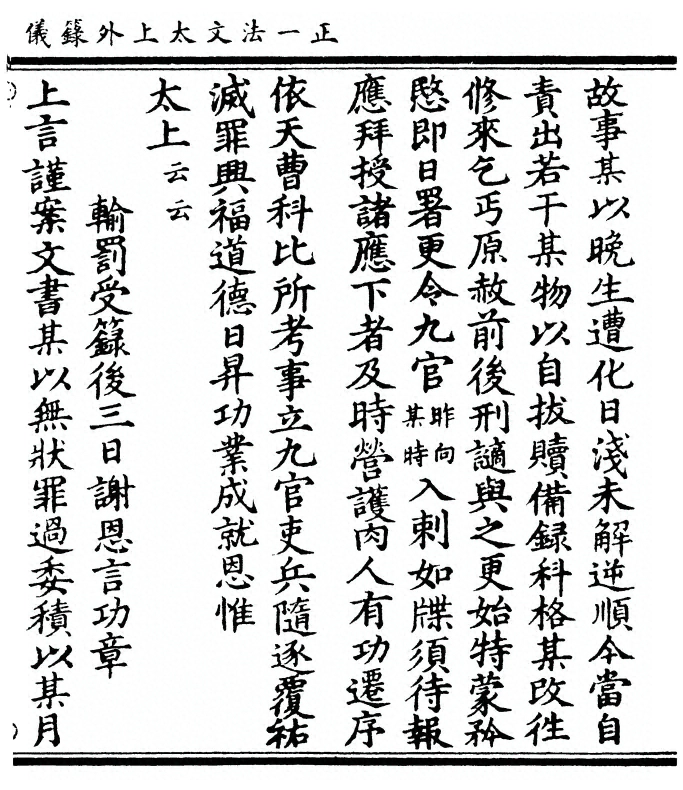 正一法文太上外籙儀
故事某以晚生遭化日淺未解逆順今當自
責出若干某物以自拔贖備録科格某改徃
修來乞丐原赦前後刑讁與之更始特蒙矜
愍即日署更令九官昨向某時入剌如牒須待報
應拜授諸應下者及時營護肉人有功遷序
依天曹科比所考事立九官吏兵隨逐覆祐
滅罪興福道德日昇功業成就恩惟
太上云云
輸罰受籙後三日謝恩言功章
上言謹案文書某以無狀罪過委積以某月